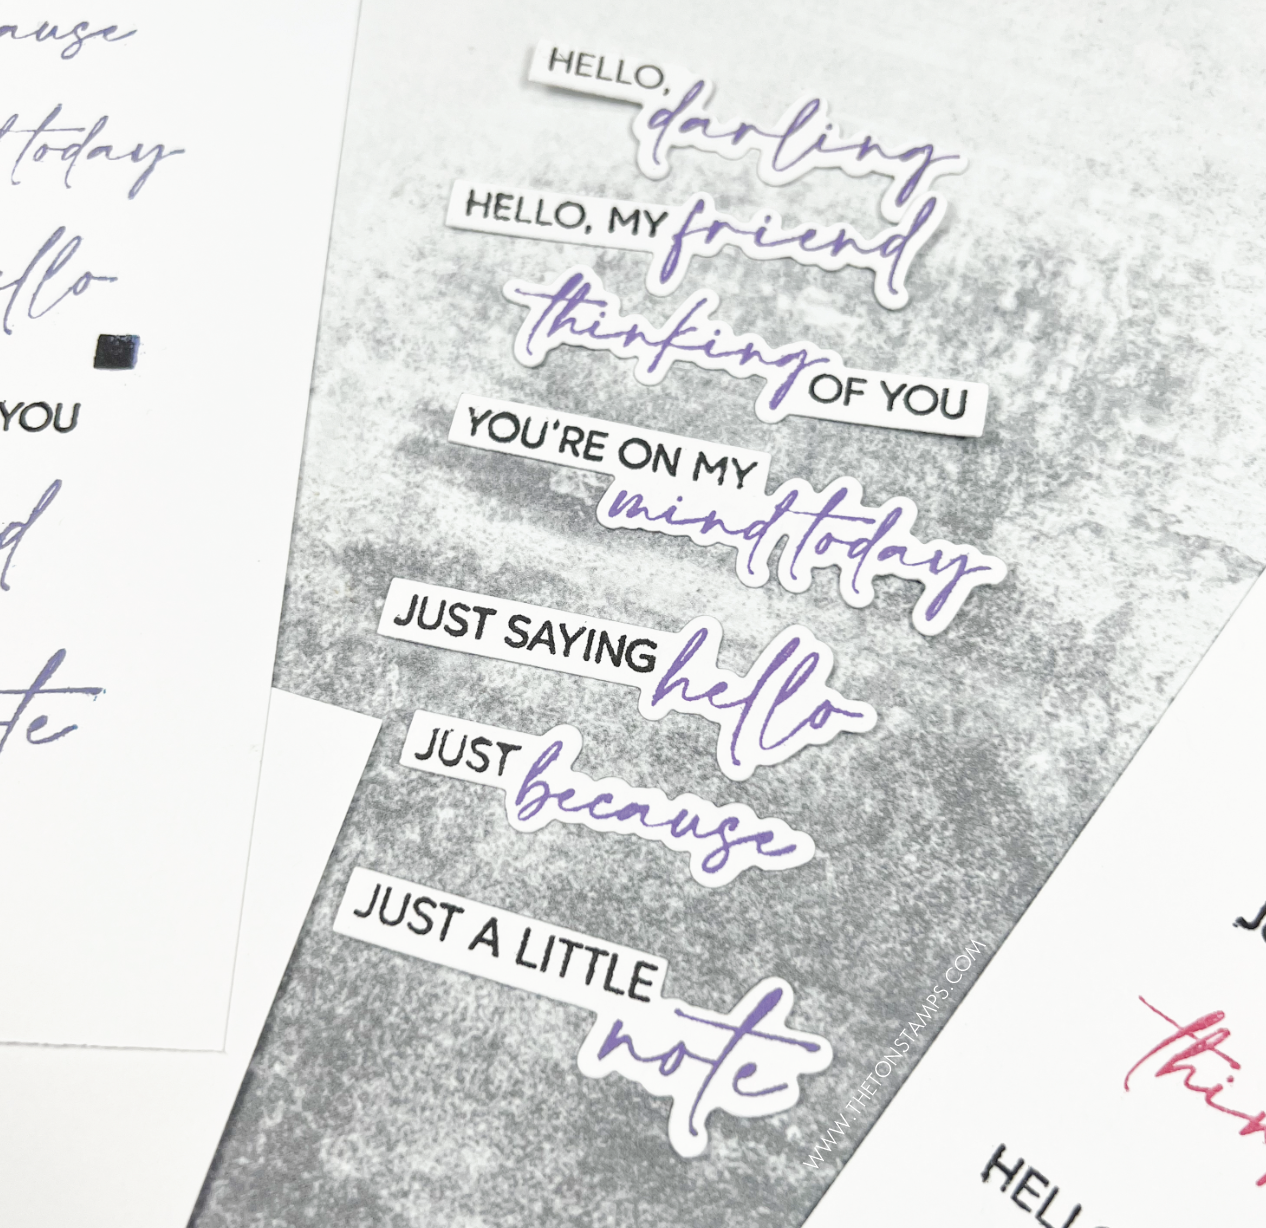 today
YOU
HELLO,
darling
HELLO, MY friend
thinking OF YOU
YOU'RE ON MY
mind today
JUST SAYING hello
JUST because
JUST A LITTLE
note
WWW.THETONSTAMPS.COM